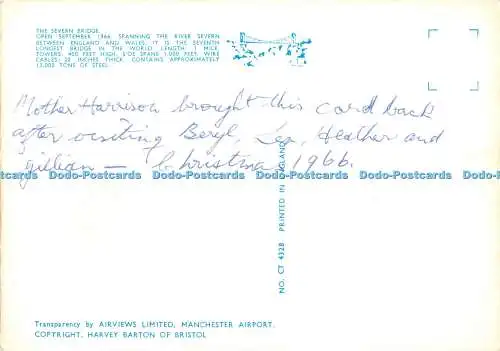 THE SEVERN BRIDGE.
OPEN SEPTEMBER 1966. SPANNING THE RIVER SEVERN
BETWEEN ENGLAND AND WALES. IT IS THE SEVENTH
LONGEST BRIDGE IN THE WORLD. LENGTH 1 MILE.
TOWERS: 400 FEET HIGH. SIDE SPANS 1,000 FEET. WIRE
CABLES: 20 INCHES THICK. CONTAINS APPROXIMATELY
TONS OF STEEL.
Mother Harrison brought this card back
after visiting Beryl, Les, Heather and
Gillian — Christmas 1966.
Dodo-Postcards Dodo-Postcards Dodo-Postcards Dodo-Postcards Dodo-Postcards Dodo-Postcards
NO. CT 4328 PRINTED IN ENGLAND
Transparency by AIRVIEWS LIMITED, MANCHESTER AIRPORT.
COPYRIGHT, HARVEY BARTON OF BRISTOL